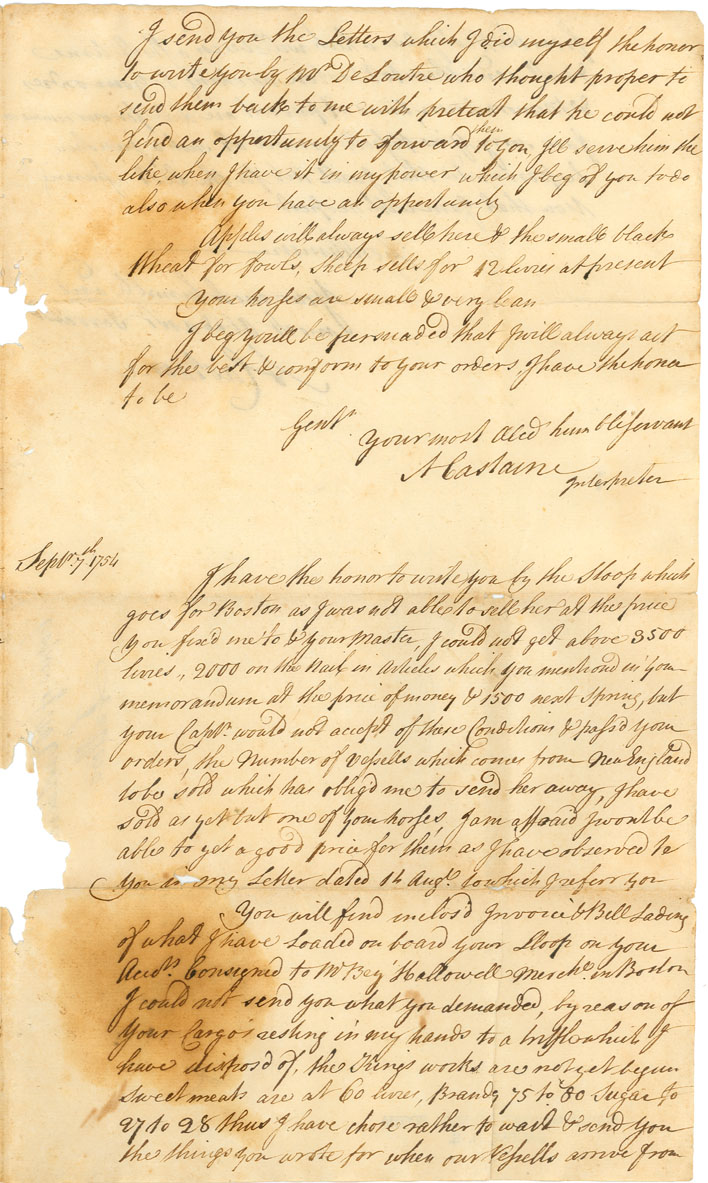 I send you the Letters which I did myself the honor
to write you by Mr. De Loutre who thought proper to
send them back to me with pretext that he could not
find an opportunity to forward them to you, I'll serve him the
like, when I have it in my power which I beg of you to do
also when you have an opportunity
Apples will always sell here & the small black
Wheat for fowls, Sheep sells for 12 livres at present
Your horses are small & very lean
I beg you'll be persuaded that I will always act
for the best & conform to your orders, I have the honor
to be
Gentn.
Your most Obed humble servant
A Castaine
Interpreter
Septr. 7th 1754
I have the honor to write you by the Sloop which
goes for Boston as I was not able to sell her at the price
you fix'd me to & your Master, I could not get above 3500
livres, 2000 on the Nail in Articles which you mention'd in your
memorandum at the price of money & 1500 next Spring, but
your Captn. would not accept of these Conditions & pass'd your
orders, the Number of Vessells which comes from New England
to be sold which has oblig'd me to send her away, I have
sold as yet but one of your horses, I am affraid I wont be
able to get a good price for them as I have observed to
you in my Letter dated 14 Augt. to which I referr you
You will find inclos'd Invoice & Bill Lading
of what I have Loaded on board your Sloop on your
Accots. Consigned to Mr Benj Hallowell Mercht. in Boston
I could not send you what you demanded, by reason of
your Cargo's resting in my hands to a triffle which I
have dispos'd of, the Kings works are not yet begun
Sweet meats are at 60 livres, Brandy 75 to 80 Sugar to
27 to 28 thus I have chose rather to wait & send you
the things you wrote for when our Vessells arrive from